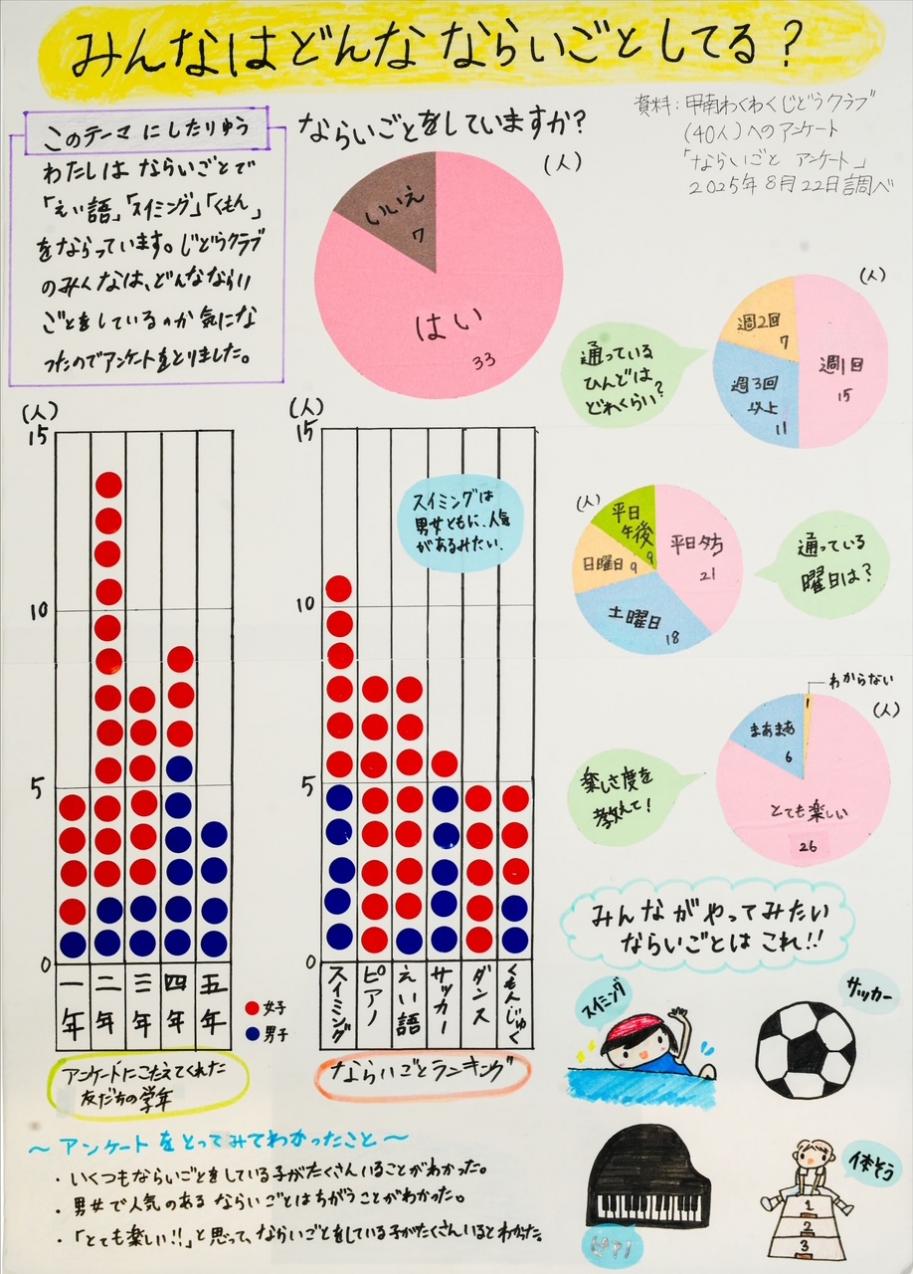 みんなはどんなならいごとしてる？
資料：甲南わくわくじどうクラブ
(40人)へのアンケート
「ならいごと アンケート」
2025年8月22日調べ
このテーマにしたりゆう
わたしは ならいごとで
「えい語」「スイミング」「くもん」
をならっています。じどうクラブ
のみんなは、どんなならい
ごとをしているのか 気にな
ったのでアンケートをとりました。
ならいごとをしていますか？
(人)
いいえ
7
はい
33
通っている
ひんどは
どれくらい？
(人)
週2回
7
週1回
15
週3回
以上
11
(人)
平日
午後
9
平日夕方
21
日曜日 9
土曜日
18
通っている
曜日は？
わからない
1
(人)
まあまあ
6
とても楽しい
26
楽しさ度を
教えて！
(人)
15
10
5
0
一年
二年
三年
四年
五年
女子
男子
アンケートにこたえてくれた
友だちの学年
(人)
15
10
5
0
スイミングは
男女ともに、人気
があるみたい。
スイミング
ピアノ
えい語
サッカー
ダンス
くもんじゅく
ならいごとランキング
みんながやってみたい
ならいごとは これ!!
スイミング
サッカー
ピアノ
体そう
1
2
3
〜アンケートをとってみてわかったこと〜
・いくつもならいごとをしている子がたくさんいることがわかった。
・男女で人気のある ならいごとはちがうことがわかった。
・「とても楽しい!!」と思って、ならいごとをしている子がたくさんいるとわかった。